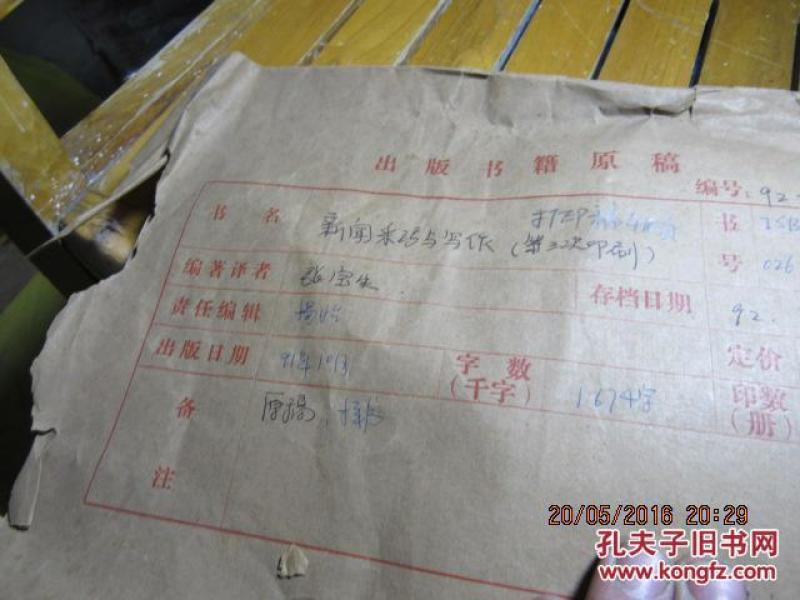 出版书籍原稿
编号: 92
书名 新闻采访与写作 (第三次印刷) 打印稿 书号 ISB 026
编著译者 张宝生 存档日期 92.
责任编辑
出版日期 91年10月 字数(千字) 1674字 定价 印数(册)
备注 原稿
20/05/2016 20:29
孔夫子旧书网
www.kongfz.com